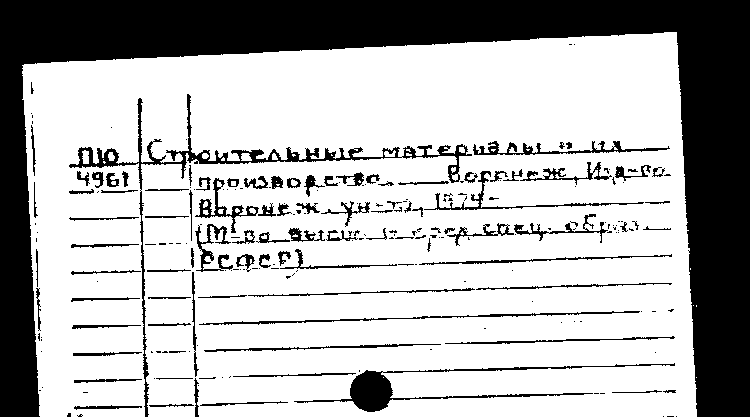 П10 Строительные материалы и их
4961 производство. Воронеж, Изд-во
Воронеж. ун-та, 1974-
(М-во высш. и сред. спец. образ.
РСФСР)